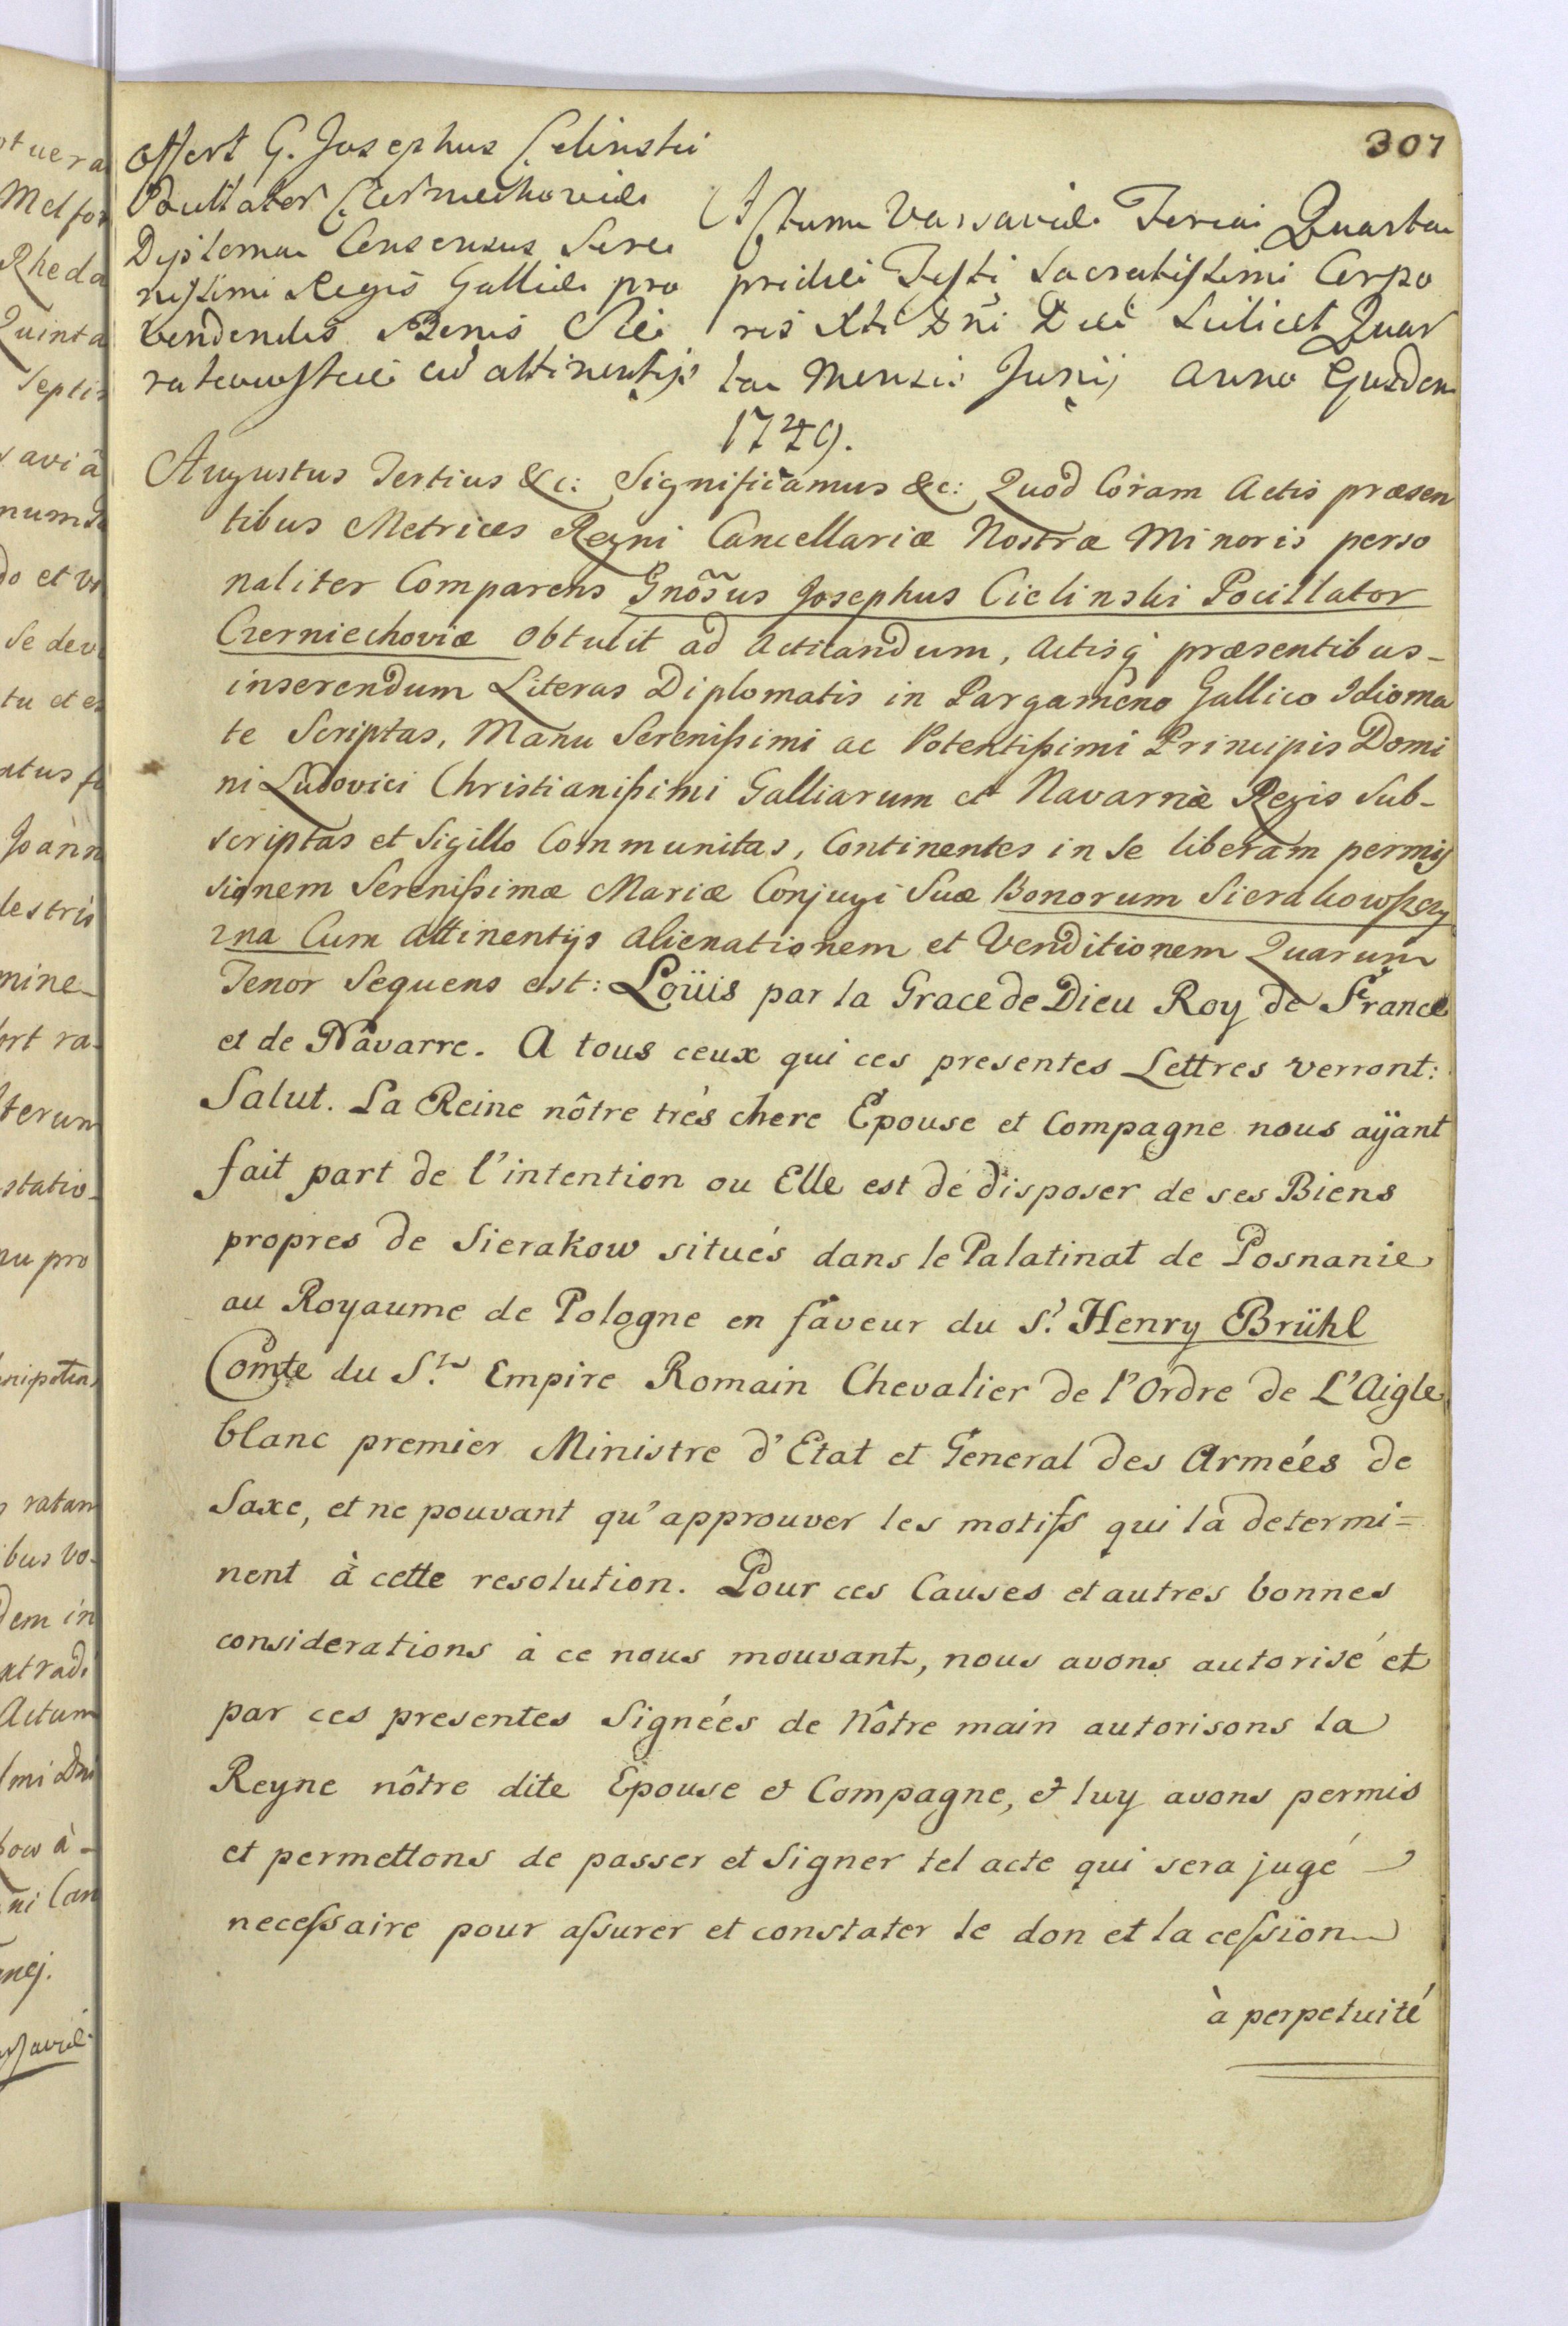 307
Offert G. Josephus Cielinski
Pocillator Czerniechoviæ
Diploma Consensus Sere
nissimi Regis Galliæ pro
vendendis Bonis Sie
rakowsciè cũ attinentijs
Actum Varsaviæ Feria Quarta
pridiè Festi Sacratissimi Corpo
ris Xti Dñi Diè Scilicet Quar
ta Mensis Junij Anno Ejusdem
1749.
Augustus Tertius &c: Significamus &c: Quod Coram Actis præsen
tibus Metrices Regni Cancellariæ Nostræ Minoris perso
naliter Comparens Gnõsus Josephus Cielinski Pocillator
Czerniechoviæ Obtulit ad Acticandum, Actisq præsentibus-
inserendum Literas Diplomatis in Pargameno Gallico Idioma
te Scriptas, Manu Serenißimi ac Potentißimi Principis Domi
ni Ludovici Christianißimi Galliarum et Navarriæ Regis Sub-
scriptas et Sigillo Communitas, Continentes in Se liberam permis
sionem Serenißimæ Mariæ Conjugi Suæ Bonorum Sierakowszczy
zna Cum Attinentijs alienationem et Venditionem Quarum
Tenor Sequens est: Loüis par la Grace de Dieu Roy de France
et de Navarre. A tous ceux qui ces presentes Lettres verront:
Salut. La Reine nôtre trés chere Epouse et Compagne nous aÿant
fait part de l'intention ou Elle est de disposer de ses Biens
propres de Sierakow situés dans le Palatinat de Posnanie
au Royaume de Pologne en faveur du Sr. Henry Brühl
Comte du St. Empire Romain Chevalier de l'Ordre de L'Aigle
blanc premier Ministre d'Etat et General des Armées de
Saxe, et ne pouvant qu'approuver les motifs qui la determi=
nent à cette resolution. Pour ces Causes et autres bonnes
considerations à ce nous mouvant, nous avons autorisé et
par ces presentes Signées de Nôtre main autorisons la
Reyne nôtre dite Epouse et Compagne, et luy avons permis
et permettons de passer et Signer tel acte qui sera jugé
necessaire pour assurer et constater le don et la cession
à perpetuité